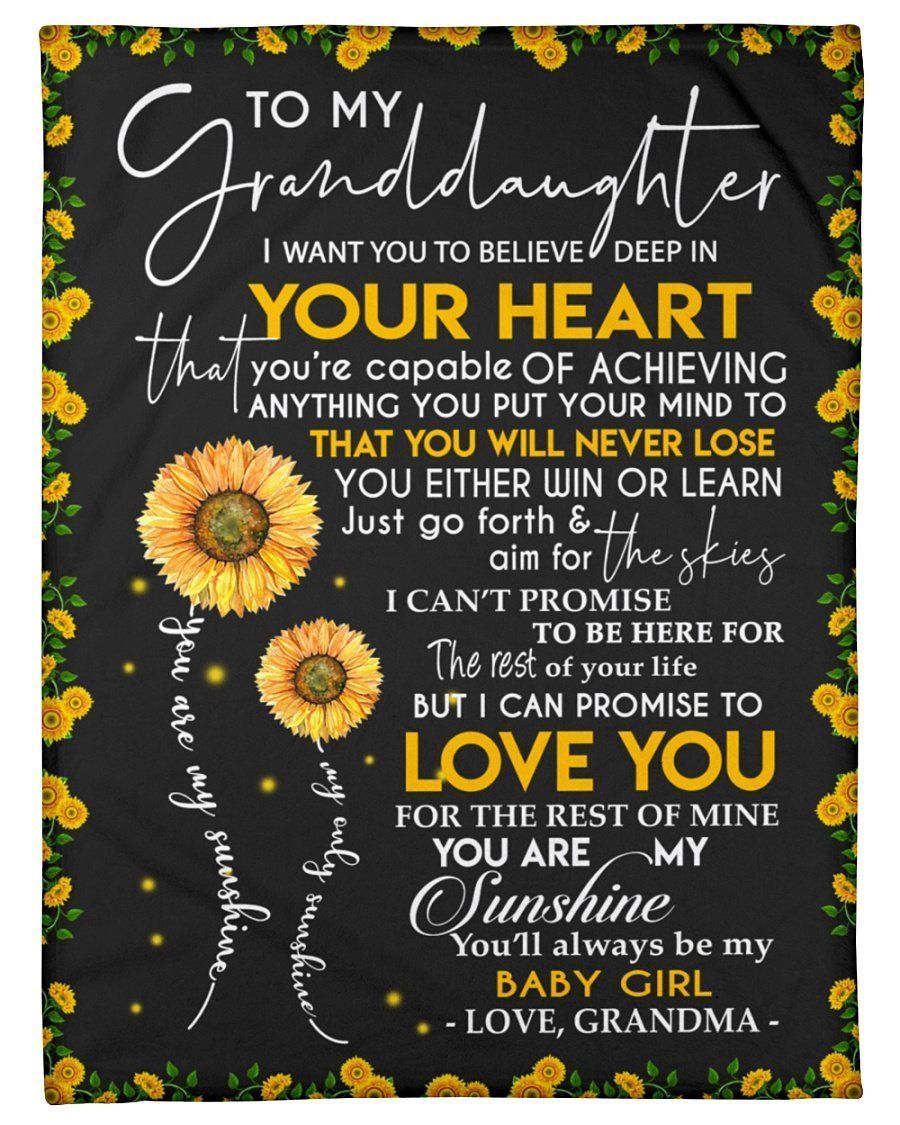 TO MY
Granddaughter
I WANT YOU TO BELIEVE DEEP IN
YOUR HEART
that you're capable OF ACHIEVING
ANYTHING YOU PUT YOUR MIND TO
THAT YOU WILL NEVER LOSE
YOU EITHER WIN OR LEARN
Just go forth &
aim for the skies
I CAN'T PROMISE
TO BE HERE FOR
The rest of your life
BUT I CAN PROMISE TO
LOVE YOU
FOR THE REST OF MINE
YOU ARE MY
Sunshine
You'll always be my
BABY GIRL
- LOVE, GRANDMA -
you are my sunshine
my only sunshine